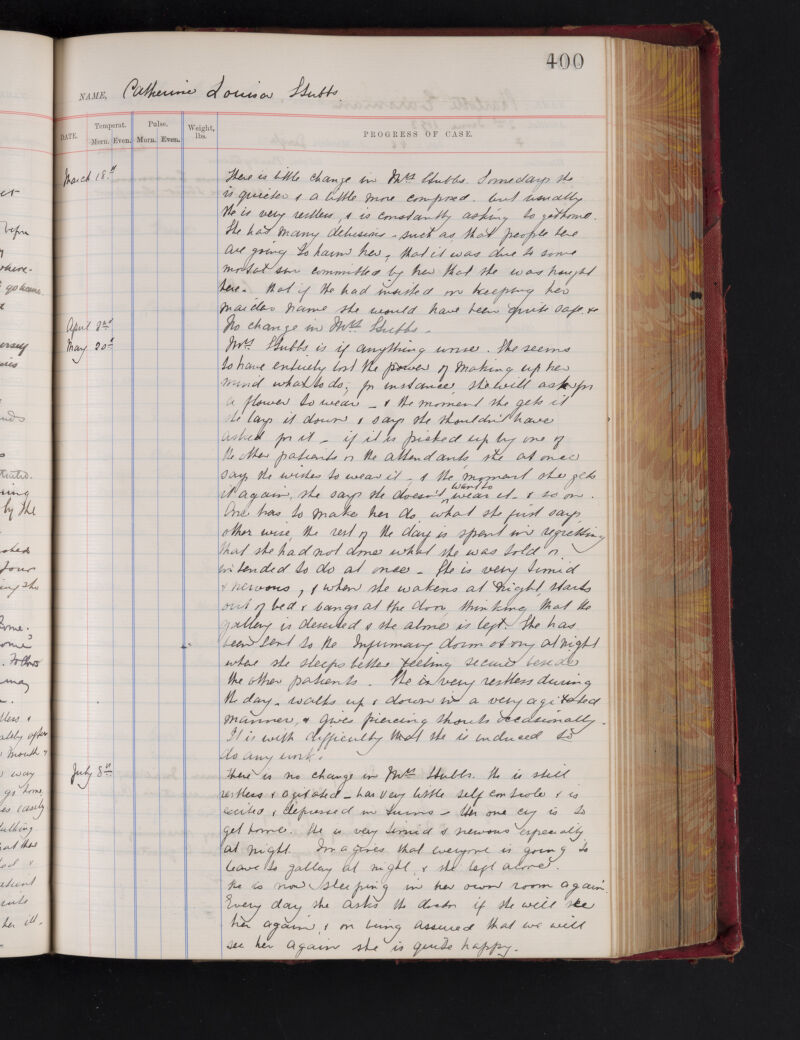 400
NAME, Catherine Louisa Stubbs
DATE. Temperat. Pulse. Weight, lbs. PROGRESS OF CASE.
Morn. Even. Morn. Even.
March 18th There is little change in Mrs Stubbs. Somedays she
is quieter & a little more composed. but usually
she is very restless, & is constantly asking to get home.
She has many delusions - such as, that people here
are going to harm her, that it was due to some
mortal sin committed by her that she was brought
here. That if she had insisted on keeping her
maiden name she would have been quite safe. &c
April 2nd No change in Mrs Stubbs.
May 20th Mrs Stubbs is if anything worse. She seems
to have entirely lost the power of making up her
mind what to do; for instance, she will ask for
a flower to wear - & the moment she gets it
she lays it down & says she shouldn't have
asked for it - if it is picked up by one of
the other patients or the attendants she at once
says she wishes to wear it - & the moment she gets
it again, she says she doesn't want to wear it - & so on.
One has to make her do what she first says,
other wise, the rest of the day is spent in regretting
that she had not done what she was told or
intended to do at once - She is very timid
& nervous, & when she wakens at night, starts
out of bed & bangs at the door, thinking that the
gallery is deserted & she alone is left. She has
been sent to the Infirmary dormitory at night
where she sleeps better feeling secure beside
the other patients. She is very restless during
the day - walks up & down in a very agitated
manner, & gives piercing shouts occasionally.
It is with difficulty that she is induced to
do any work.
July 8th There is no change in Mrs Stubbs. She is still
restless & agitated - has very little self control & is
excited & depressed in turns - Her one cry is to
get home. She is very timid & nervous especially
at night. Imagines that everyone is going to
leave the gallery at night & she left alone.
She is now sleeping in her own room again.
Every day she asks the doctor if she will see
her again, & on being assured that we will
see her again she is quite happy.